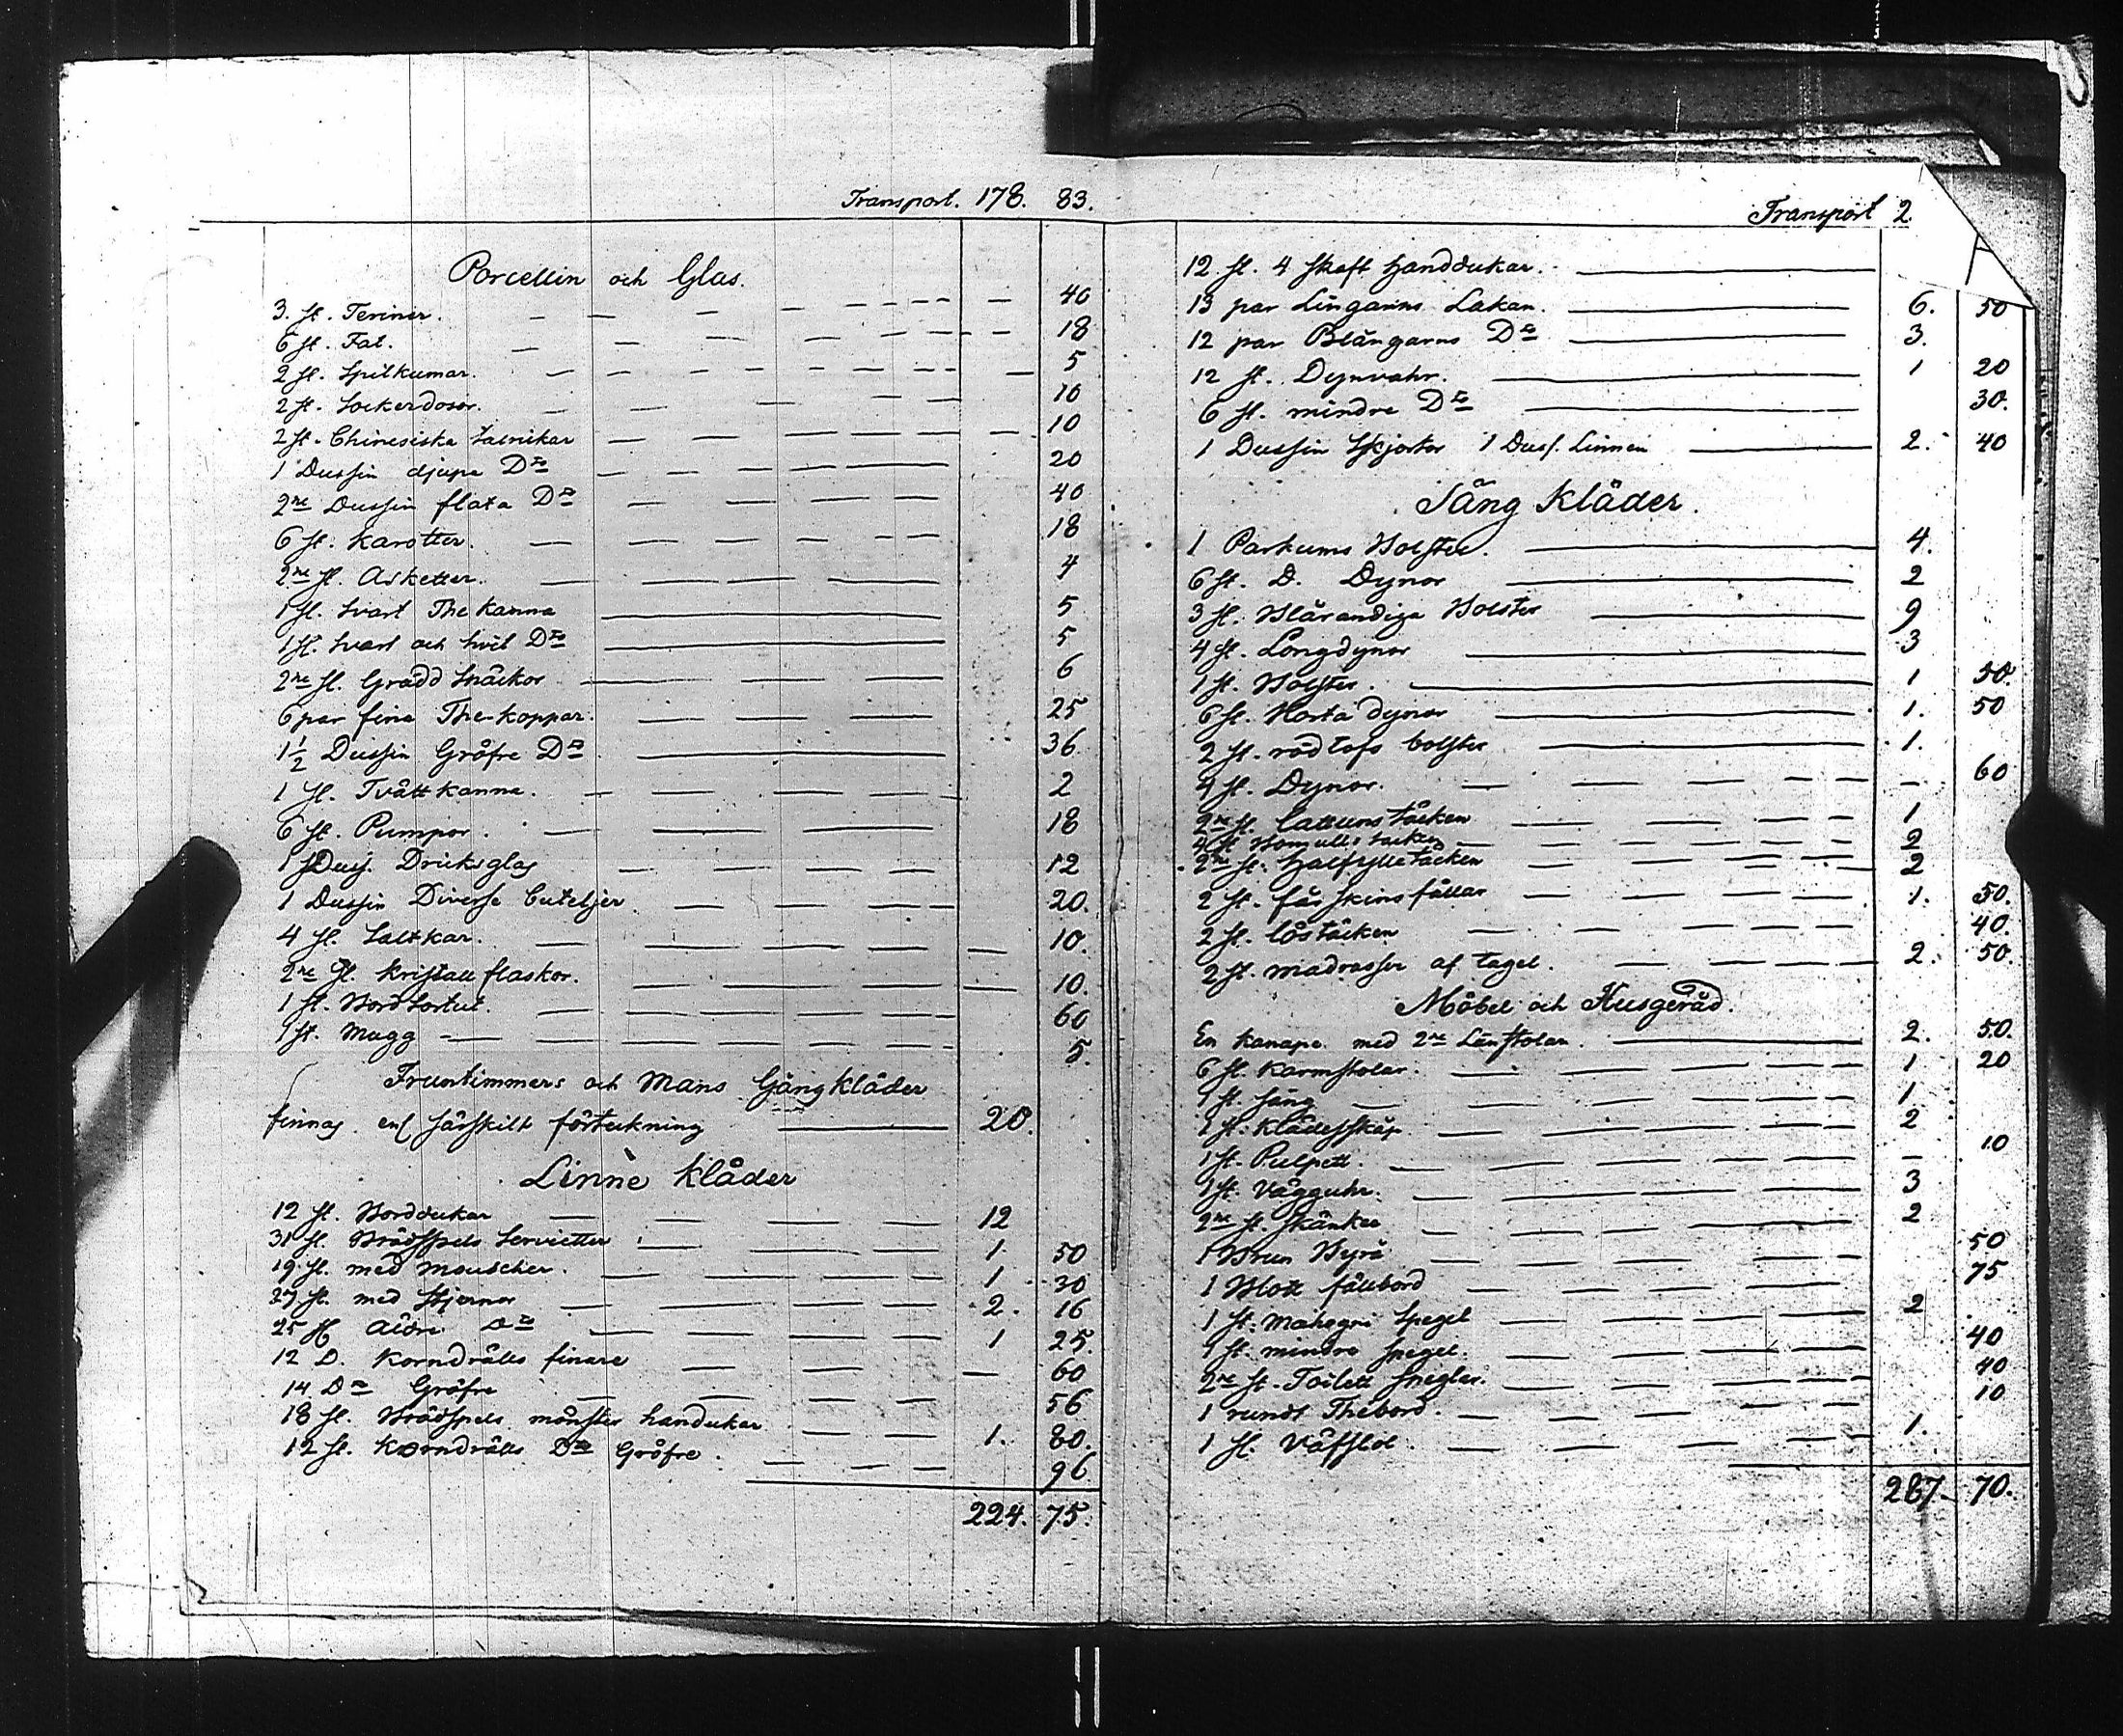 Transport. 178. 83.
Porcellin och Glas.
3. st. Teriner. 40
6 st. Fat. 18
2 st. Spilkumar. 5
2 st. Sockerdosor. 10
2 st. Chinesiska Talrikar 10
1 Dussin djupa Do 20
2ne Dussin flata Do 40
6 st. Karotter. 18
2ne st. Asketter. 4
1 st. Svart The Kanna 5
1 st. Svart och hvit Do 5
2ne st. Grädd Snäckor 6
6 par fina The-koppar. 25
1 1/2 Dussin Gröfre Do 36
1 st. Tvättkanna. 2
6 st. Pumpor. 18
1 Duss. Dricksglas 12
1 Dussin Diverse buteljer 20.
4 st. Saltkar. 10.
2ne st. Kristall flaskor. 10.
1 st. Bord Sortut. 60
1 st. Mugg 5.
Fruntimmers och Mans Gångkläder
finnas enl särskilt förteckning 20.
Linnè kläder
12 st. Borddukar 12
31 st. Brädspels Servietter 1. 50
19 st. med Mouscher. 1. 30
27 st. med Stjernor 2. 16
25 st äldre Do 1 25.
12 D. Korndrälls finare — 60
14 Do Gröfre 56
18 st. Brädspels mönster handukar 1. 80.
12 st. Korndrälls Do Gröfre. 96
224. 75.
Transport 2
12 st. 4 skaft Handdukar.
13 par Lingarns Lakan. 6. 50
12 par Blångarns Do 3.
12 st. Dynvahr. 1 20
6 st. mindre Do 30.
1 Dussin Skjortor 1 Duss. Linnen 2. 40
Säng Kläder.
1 Parkums Bolster. 4.
6 st. D. Dynor 2
3 st. Blårandiga Bolster 9
4 st. Longdynor 3
1 st. Bolster. 1 50.
6 st. Korta dynor 1. 50
2 st. rödtofs bolster 1.
4 st. Dynor. — 60
2ne st. Cattunstäcken 1
4 st Bomullstäcken 2
2ne st. Halfylletäcken 2
2 st. fårskinsfällar 1. 50.
2 st. löstäcken 40.
2 st. madrasser af tagel. 2. 50.
Möbel och Husgeråd.
En kanape med 2ne Länstolar. 2. 50.
6 st. Karmstolar. 1 20
1 st. Säng 1
1 st. Klädesskåp 2
1 st. Pulpett. — 10
1 st. Vägguhr. 3
2ne st. Skänkar 2
1 Brun Byrå 50
1 Blott fällbord 75
1 st. Mahogni Spegel 2
1 st. mindre Spegel. 40
2ne st. Toilett Speglar. 40
1 rundt Thebord. 10
1 st. Väfstol. 1.
287. 70.